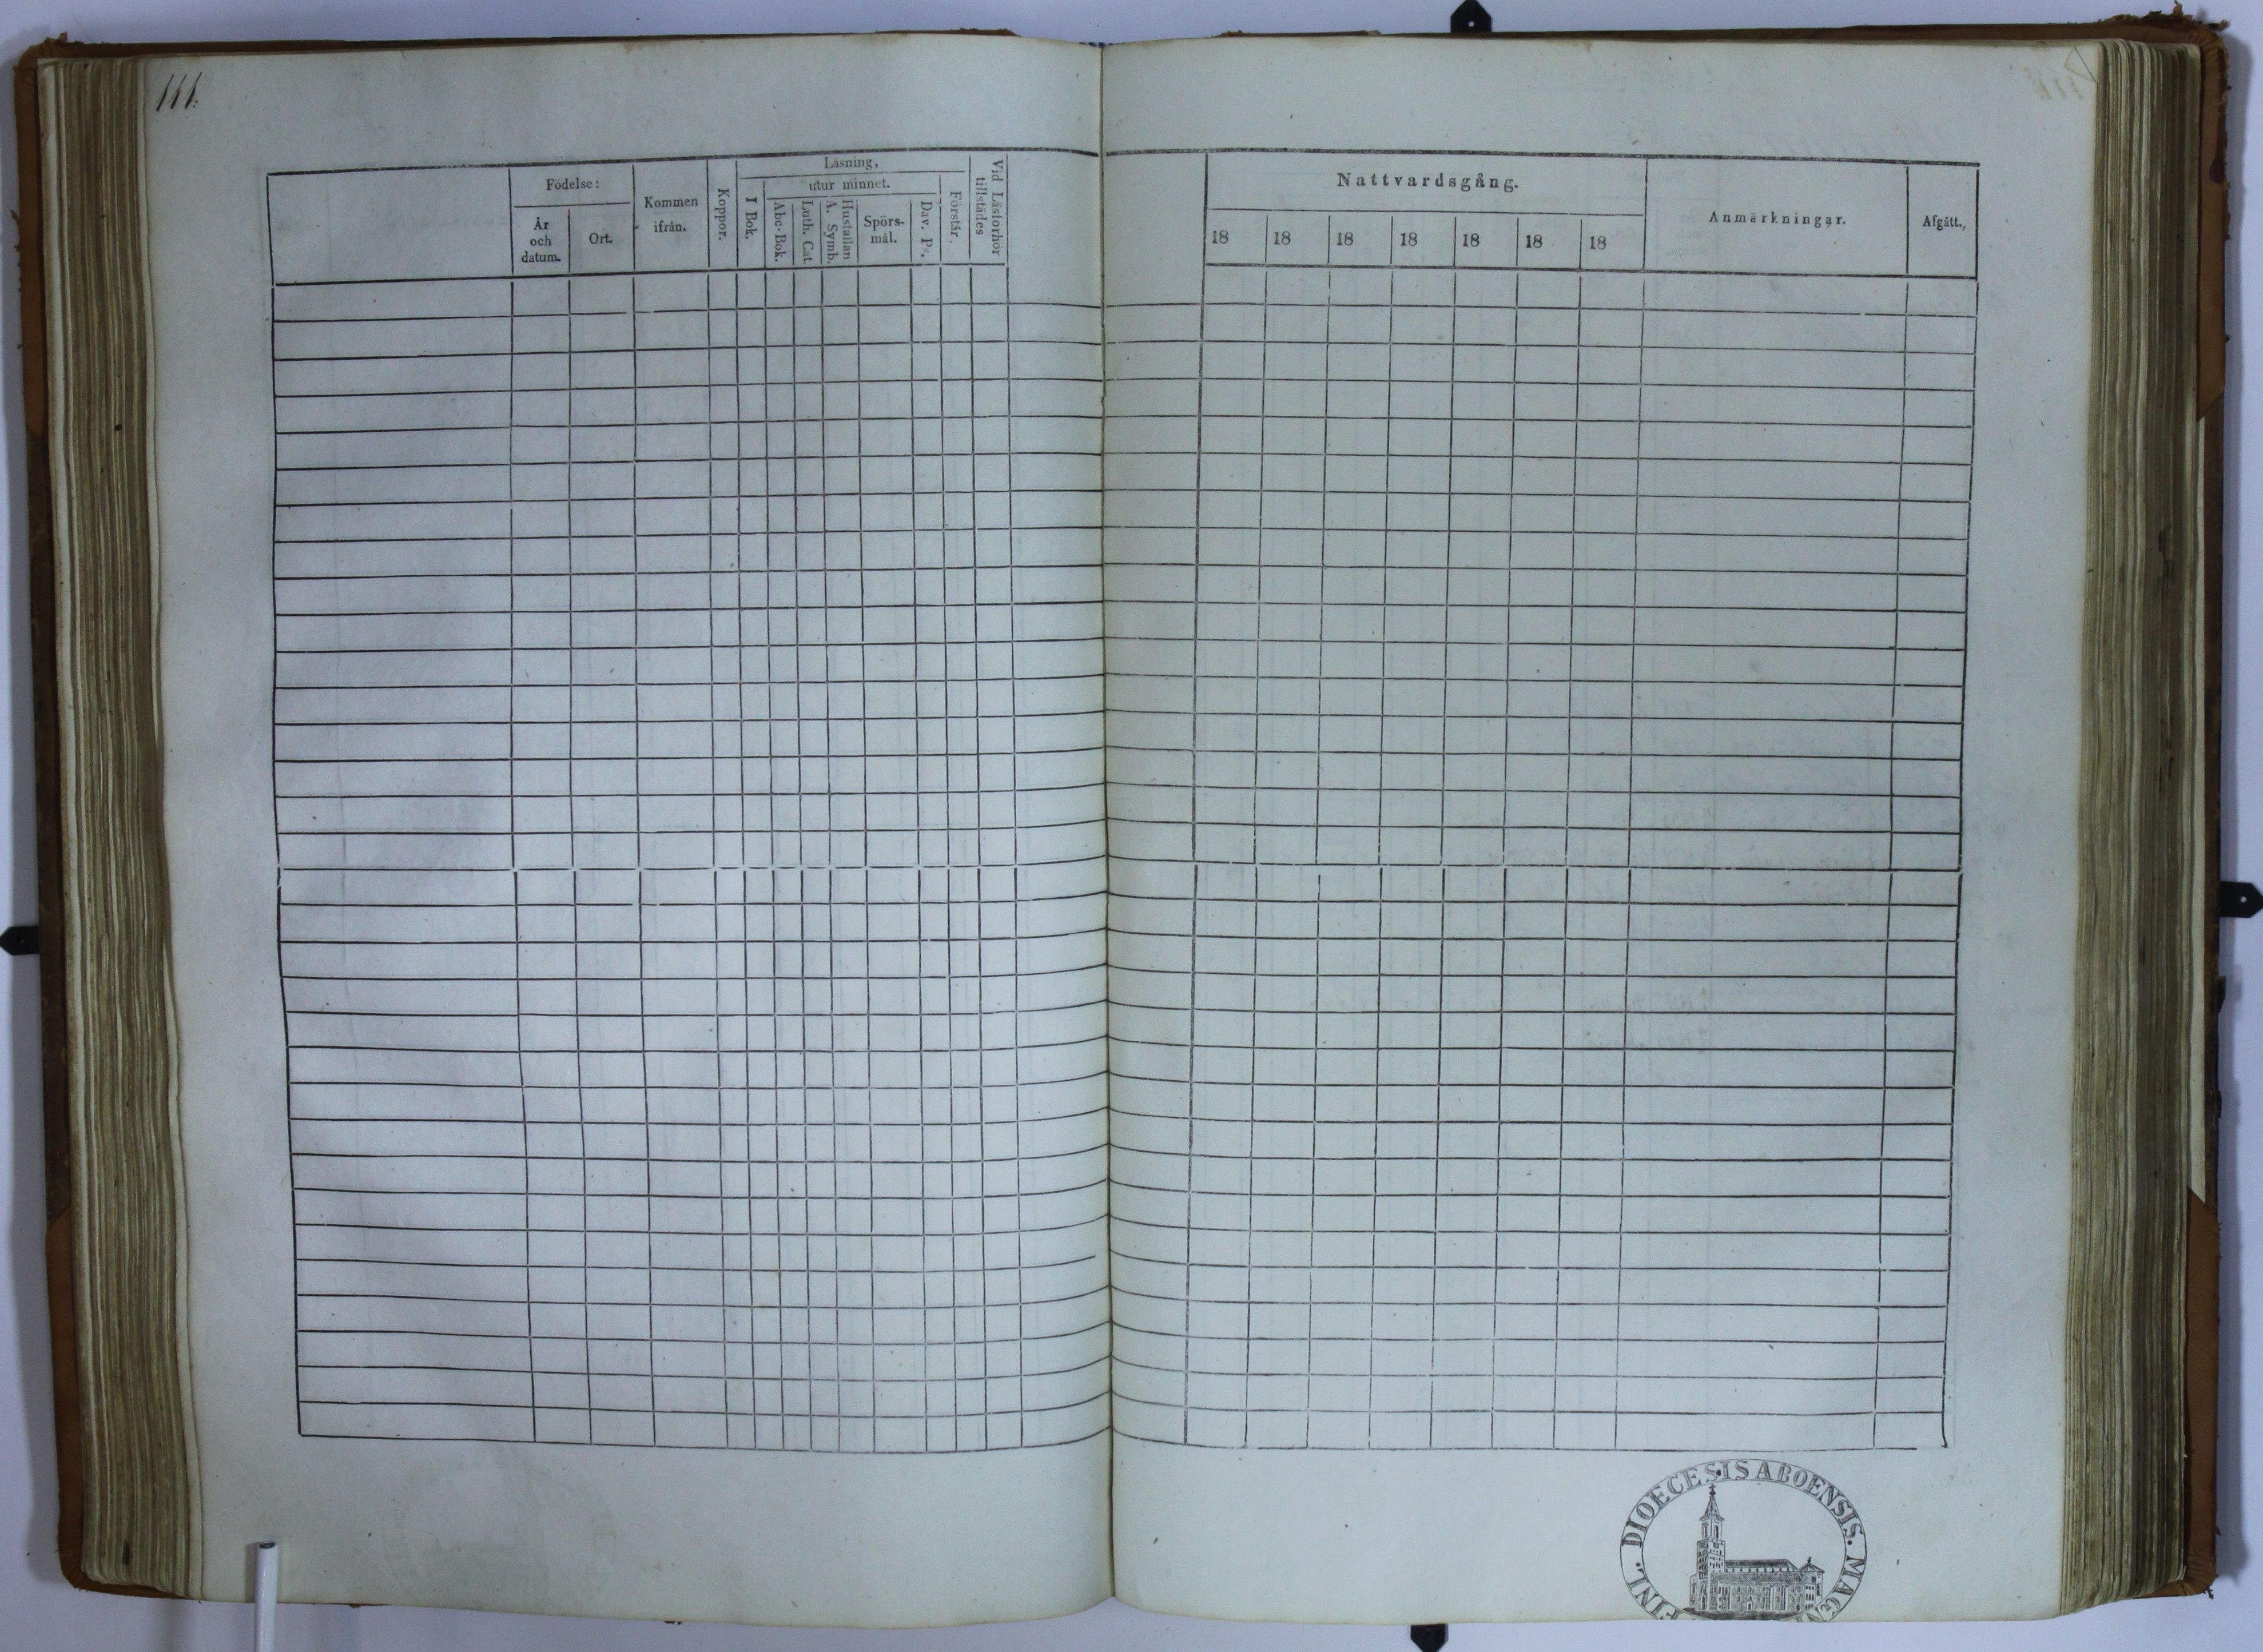 111.
Födelse:
År
och
datum.
Ort.
Kommen
ifrån.
Koppor.
Läsning,
I Bok.
utur minnet.
Abc-Bok.
Luth. Cat.
Hustaflan
A. Symb.
Spörs-
mål.
Dav. Ps.
Förstår.
Vid Läsförhör
tillstädes
Nattvardsgång.
18 18 18 18 18 18 18
Anmärkningar.
Afgått.
FINL. DIOECESIS ABOENSIS. MAGNI